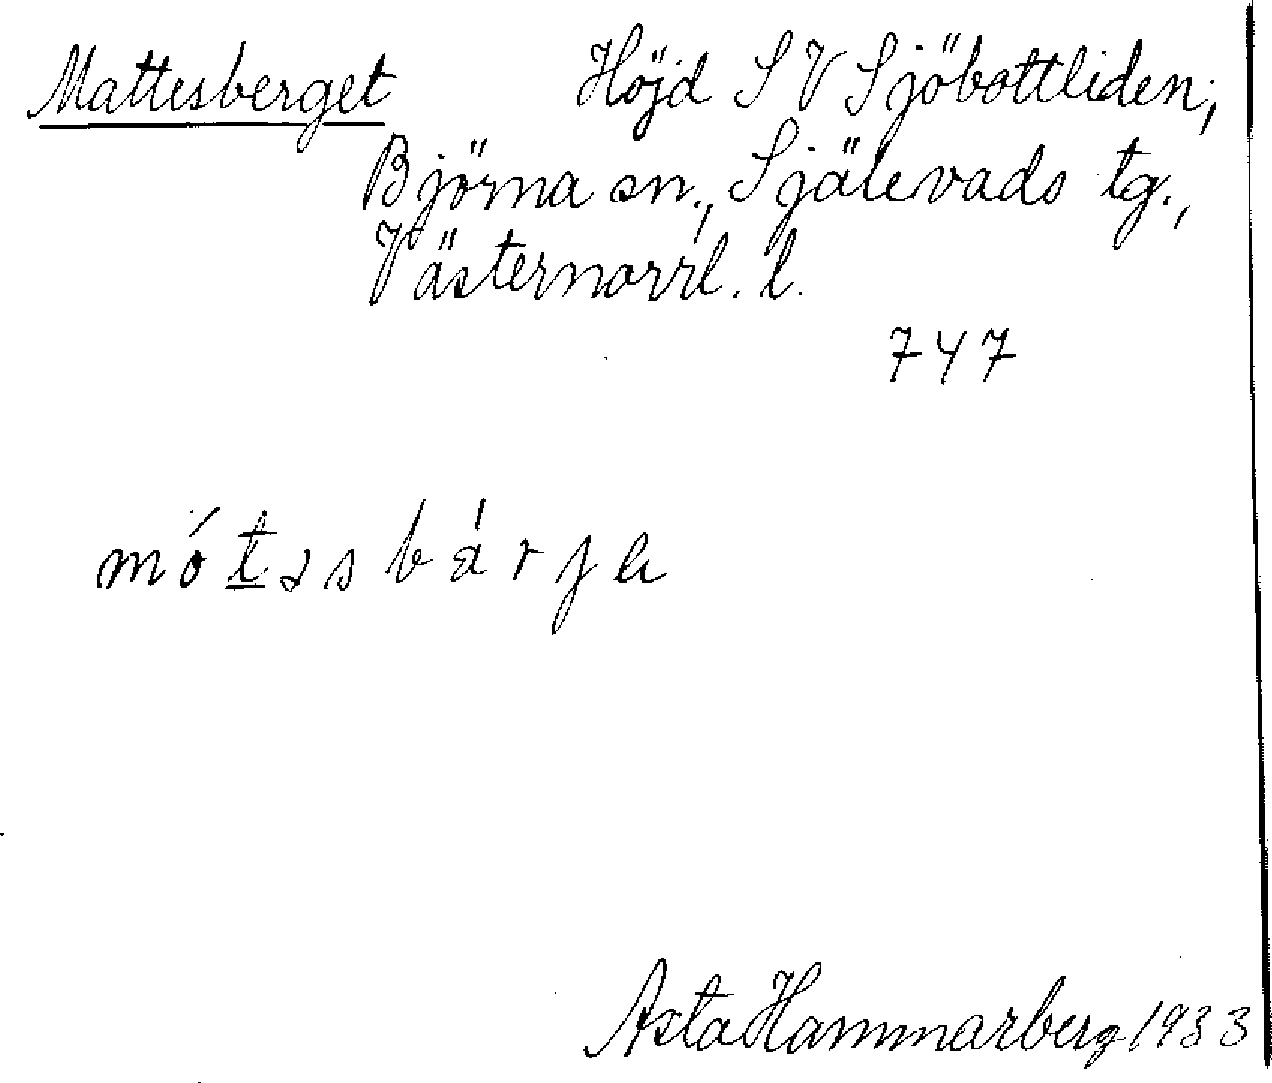 Mattesberget Höjd SV Sjöbottliden,
Björna sn., Själevads tg.,
Västernorrl. l.
747
mót̲əsbárjɑ
Asta Hammarberg 1933